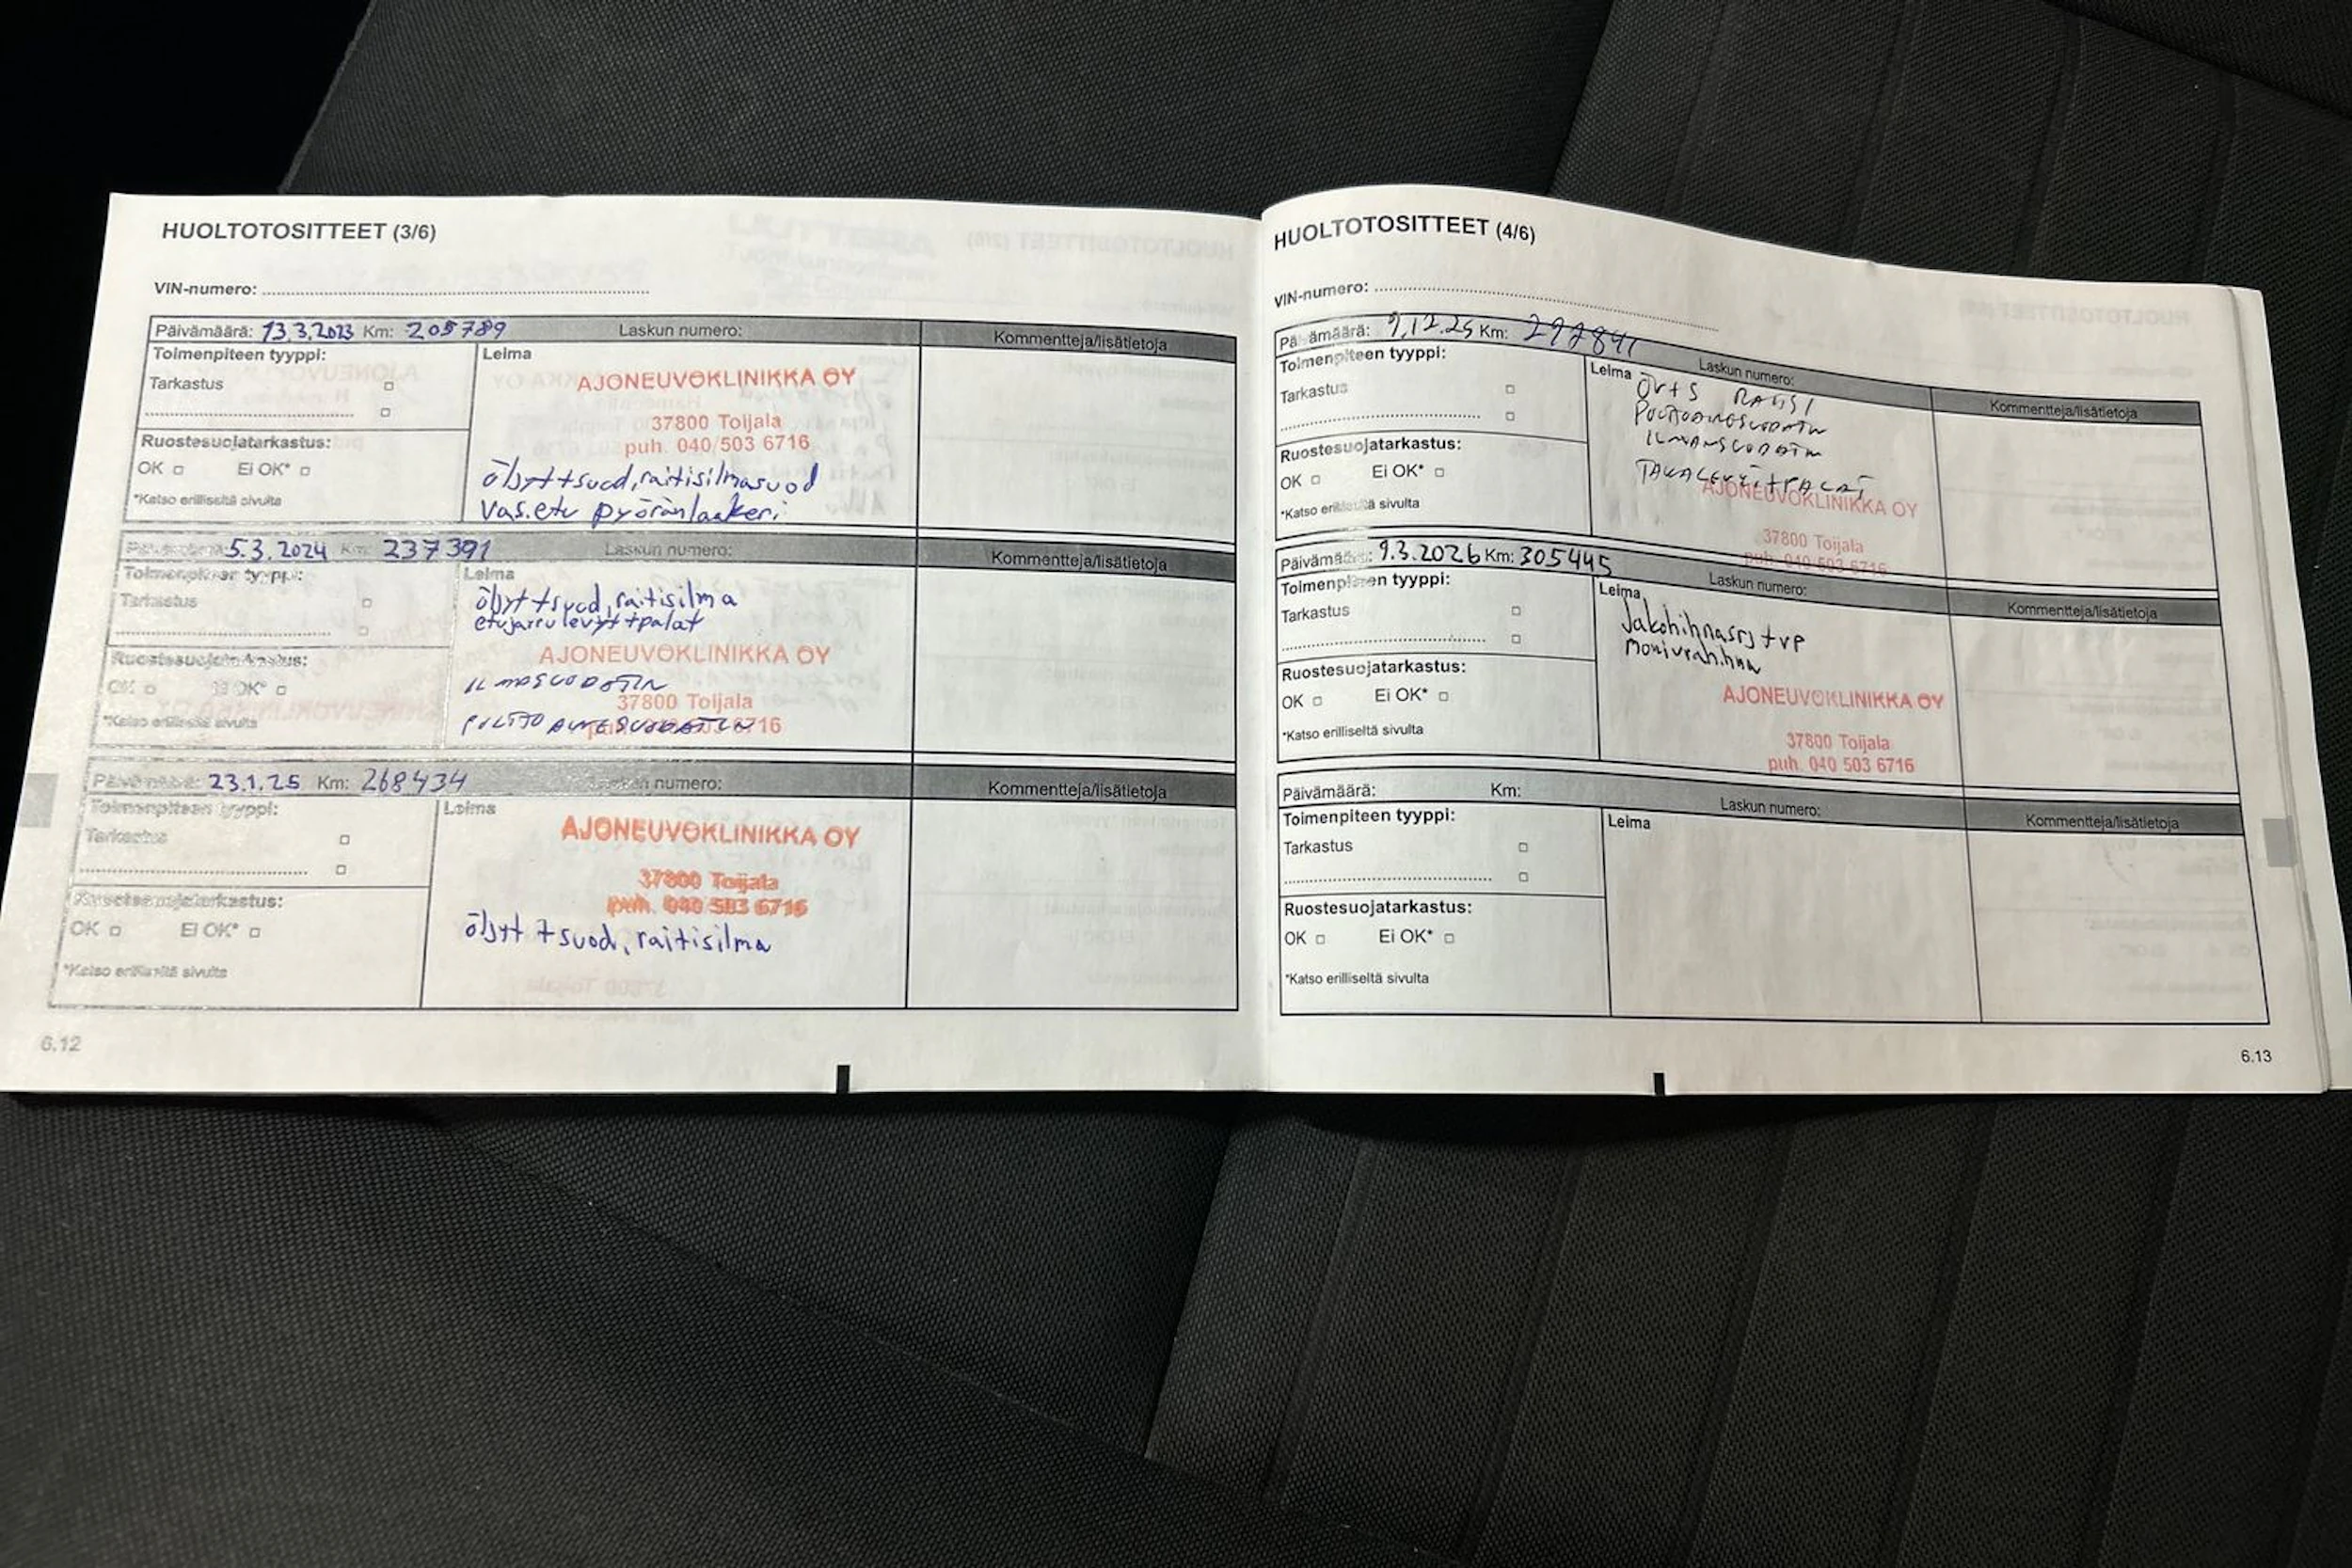 HUOLTOTOSITTEET (3/6)
VIN-numero:
Päivämäärä: 13.3.2023 Km: 205789 Laskun numero:
Kommentteja/lisätietoja
Toimenpiteen tyyppi:
Tarkastus
Ruostesuojatarkastus:
OK Ei OK*
*Katso erilliseltä sivulta
Leima
AJONEUVOKLINIKKA OY
37800 Toijala
puh. 040 503 6716
öljyt+suod, raitisilmasuod
Vas.etu pyöränlaakeri
Päivämäärä: 5.3.2024 Km: 237391 Laskun numero:
Kommentteja/lisätietoja
Toimenpiteen tyyppi:
Tarkastus
Ruostesuojatarkastus:
OK Ei OK*
*Katso erilliseltä sivulta
Leima
öljyt+suod, raitisilma
etujarrulevyt+palat
AJONEUVOKLINIKKA OY
ILMASUODATIN
37800 Toijala
POLTTOAINESUODATIN
puh. 040 503 6716
Päivämäärä: 23.1.25 Km: 268434 Laskun numero:
Kommentteja/lisätietoja
Toimenpiteen tyyppi:
Tarkastus
Ruostesuojatarkastus:
OK Ei OK*
*Katso erilliseltä sivulta
Leima
AJONEUVOKLINIKKA OY
37800 Toijala
puh. 040 503 6716
öljyt+suod, raitisilma
6.12
HUOLTOTOSITTEET (4/6)
VIN-numero:
Päivämäärä: 9.12.25 Km: 297841 Laskun numero:
Kommentteja/lisätietoja
Toimenpiteen tyyppi:
Tarkastus
Ruostesuojatarkastus:
OK Ei OK*
*Katso erilliseltä sivulta
Leima
POLTTOAINESUODATIN
ILMANSUODATIN
TAKALEVYT+PALAT
AJONEUVOKLINIKKA OY
37800 Toijala
puh. 040 503 6716
Päivämäärä: 9.3.2026 Km: 305445 Laskun numero:
Kommentteja/lisätietoja
Toimenpiteen tyyppi:
Tarkastus
Ruostesuojatarkastus:
OK Ei OK*
*Katso erilliseltä sivulta
Leima
Jakohihnasrj+vp
Moniurahihna
AJONEUVOKLINIKKA OY
37800 Toijala
puh. 040 503 6716
Päivämäärä: Km: Laskun numero:
Kommentteja/lisätietoja
Toimenpiteen tyyppi:
Tarkastus
Ruostesuojatarkastus:
OK Ei OK*
*Katso erilliseltä sivulta
Leima
6.13